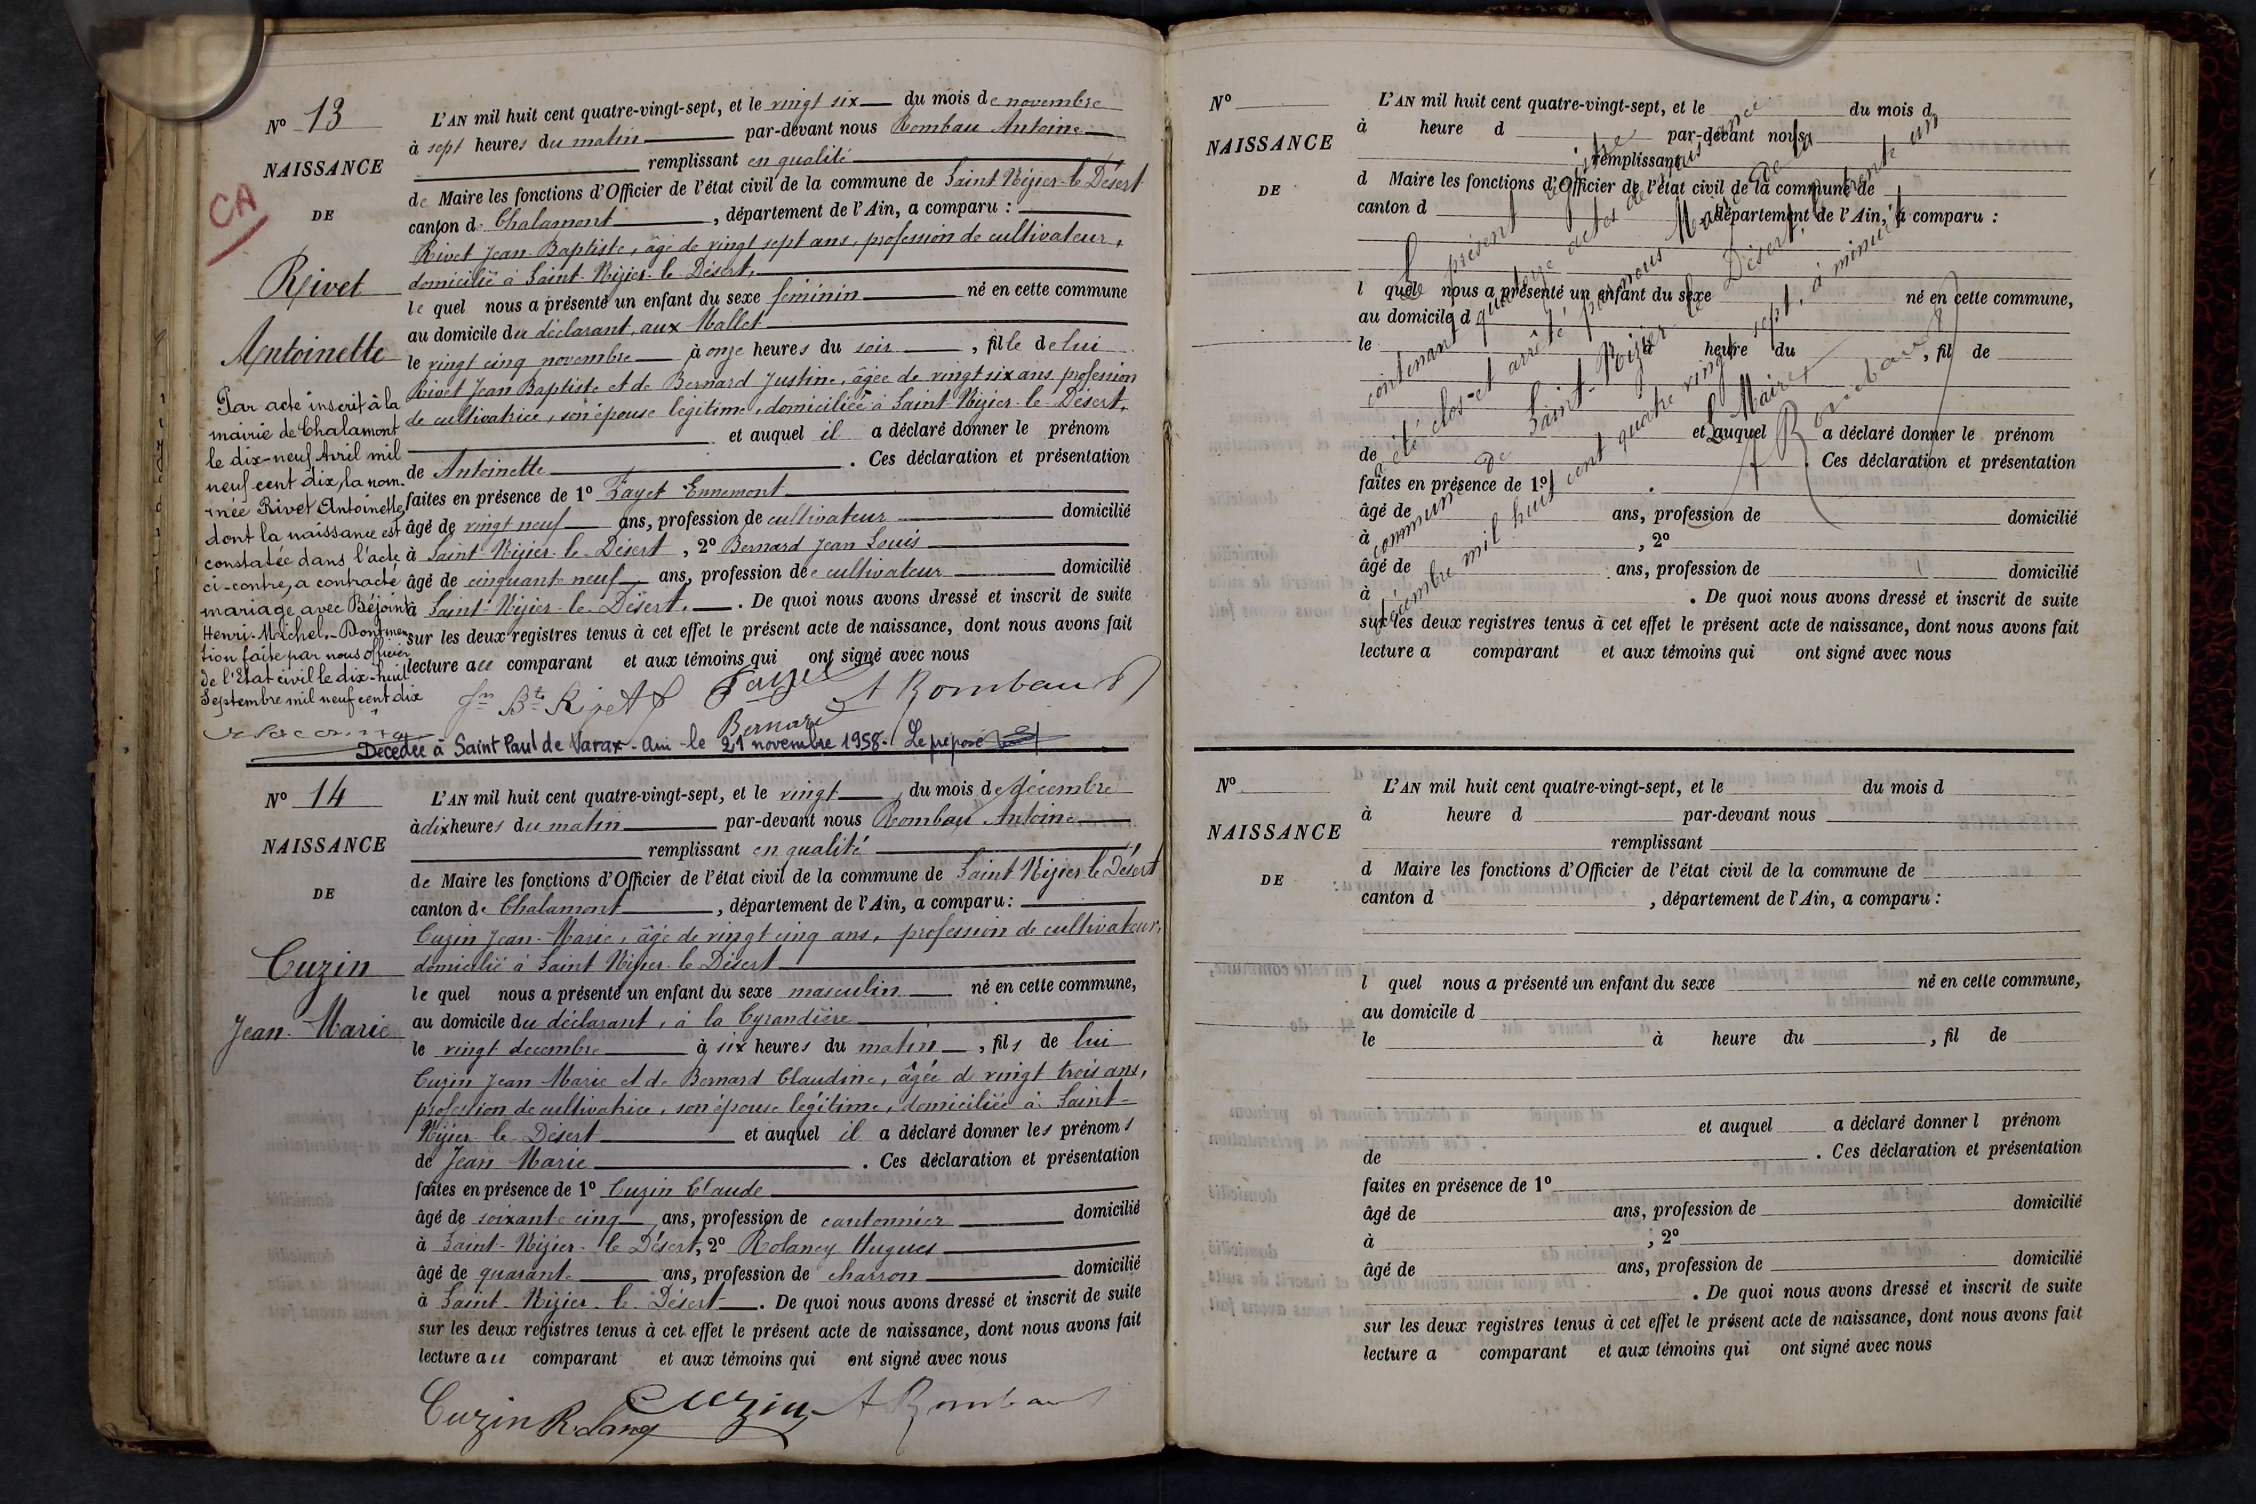 N° 13
NAISSANCE
DE
CA
Rivet
Antoinette
Par acte inscrit à la
mairie de Chalamont
le dix-neuf Avril mil
neuf cent dix, la nom-
mée Rivet Antoinette,
dont la naissance est
constatée dans l'acte
ci-contre, a contracté
mariage avec Béjoint
Henri-Michel.- Dont men
tion faite par nous officier
de l'Etat civil le dix-huit
Septembre mil neuf cent dix
L'AN mil huit cent quatre-vingt-sept, et le vingt six du mois de novembre
à sept heures du matin par-devant nous Rombau Antoine
remplissant en qualité
de Maire les fonctions d'Officier de l'état civil de la commune de Saint Nizier-le Désert
canton de Chalamont, département de l'Ain, a comparu :
Rivet Jean-Baptiste, âgé de vingt sept ans, profession de cultivateur,
domicilié à Saint-Nizier-le Désert,
le quel nous a présenté un enfant du sexe féminin né en cette commune
au domicile du déclarant, aux Mallet
le vingt cinq novembre à onze heures du soir, fille de lui
Rivet Jean Baptiste et de Bernard Justine, âgée de vingt six ans, profession
de cultivatrice, son épouse légitime, domiciliée à Saint-Nizier-le-Désert,
et auquel il a déclaré donner le prénom
de Antoinette. Ces déclaration et présentation
faites en présence de 1° Fayet Ennemont
âgé de vingt neuf ans, profession de cultivateur domicilié
à Saint Nizier-le-Désert, 2° Bernard Jean Louis
âgé de cinquante neuf ans, profession de cultivateur domicilié
à Saint-Nizier-le-Désert. De quoi nous avons dressé et inscrit de suite
sur les deux registres tenus à cet effet le présent acte de naissance, dont nous avons fait
lecture au comparant et aux témoins qui ont signé avec nous
Jn Bte Rivet Fayet A Rombau
Bernard
Décédée à Saint Paul de Varax - Ain - le 21 novembre 1958. Le préposé
N° 14
NAISSANCE
DE
Cuzin
Jean-Marie
L'AN mil huit cent quatre-vingt-sept, et le vingt du mois de décembre
à dix heures du matin par-devant nous Rombau Antoine
remplissant en qualité
de Maire les fonctions d'Officier de l'état civil de la commune de Saint-Nizier-le Désert
canton de Chalamont, département de l'Ain, a comparu :
Cuzin Jean-Marie, âgé de vingt cinq ans, profession de cultivateur,
domicilié à Saint Nizier-le Désert
le quel nous a présenté un enfant du sexe masculin né en cette commune,
au domicile du déclarant, à la Cyrandière
le vingt décembre à six heures du matin, fils de lui
Cuzin Jean Marie et de Bernard Claudine, âgée de vingt trois ans,
profession de cultivatrice, son épouse légitime, domiciliée à Saint-
Nizier-le-Désert et auquel il a déclaré donner les prénoms
de Jean Marie. Ces déclaration et présentation
faites en présence de 1° Cuzin Claude
âgé de soixante cinq ans, profession de cantonnier domicilié
à Saint-Nizier-le Désert, 2° Rolancy Hugues
âgé de quarante ans, profession de charron domicilié
à Saint-Nizier-le-Désert. De quoi nous avons dressé et inscrit de suite
sur les deux registres tenus à cet effet le présent acte de naissance, dont nous avons fait
lecture au comparant et aux témoins qui ont signé avec nous
Cuzin Rolancy Cuzin A Rombau
N°
NAISSANCE
DE
L'AN mil huit cent quatre-vingt-sept, et le du mois d
à heure d par-devant nous
remplissant
d Maire les fonctions d'Officier de l'état civil de la commune de
canton d département de l'Ain, a comparu :
l quel nous a présenté un enfant du sexe né en cette commune,
au domicile d
le à heure du , fil de
et auquel a déclaré donner le prénom
de . Ces déclaration et présentation
faites en présence de 1°
âgé de ans, profession de domicilié
à , 2°
âgé de ans, profession de domicilié
à . De quoi nous avons dressé et inscrit de suite
sur les deux registres tenus à cet effet le présent acte de naissance, dont nous avons fait
lecture a comparant et aux témoins qui ont signé avec nous
Le présent registre
contenant quatorze actes de naissance
a été clos et arrêté par nous Maire de la
commune de Saint-Nizier-le Désert, le trente un
décembre mil huit cent quatre vingt sept, à minuit
Le Maire
A Rombau
N°
NAISSANCE
DE
L'AN mil huit cent quatre-vingt-sept, et le du mois d
à heure d par-devant nous
remplissant
d Maire les fonctions d'Officier de l'état civil de la commune de
canton d , département de l'Ain, a comparu :
l quel nous a présenté un enfant du sexe né en cette commune,
au domicile d
le à heure du , fil de
et auquel a déclaré donner l prénom
de . Ces déclaration et présentation
faites en présence de 1°
âgé de ans, profession de domicilié
à , 2°
âgé de ans, profession de domicilié
. De quoi nous avons dressé et inscrit de suite
sur les deux registres tenus à cet effet le présent acte de naissance, dont nous avons fait
lecture a comparant et aux témoins qui ont signé avec nous